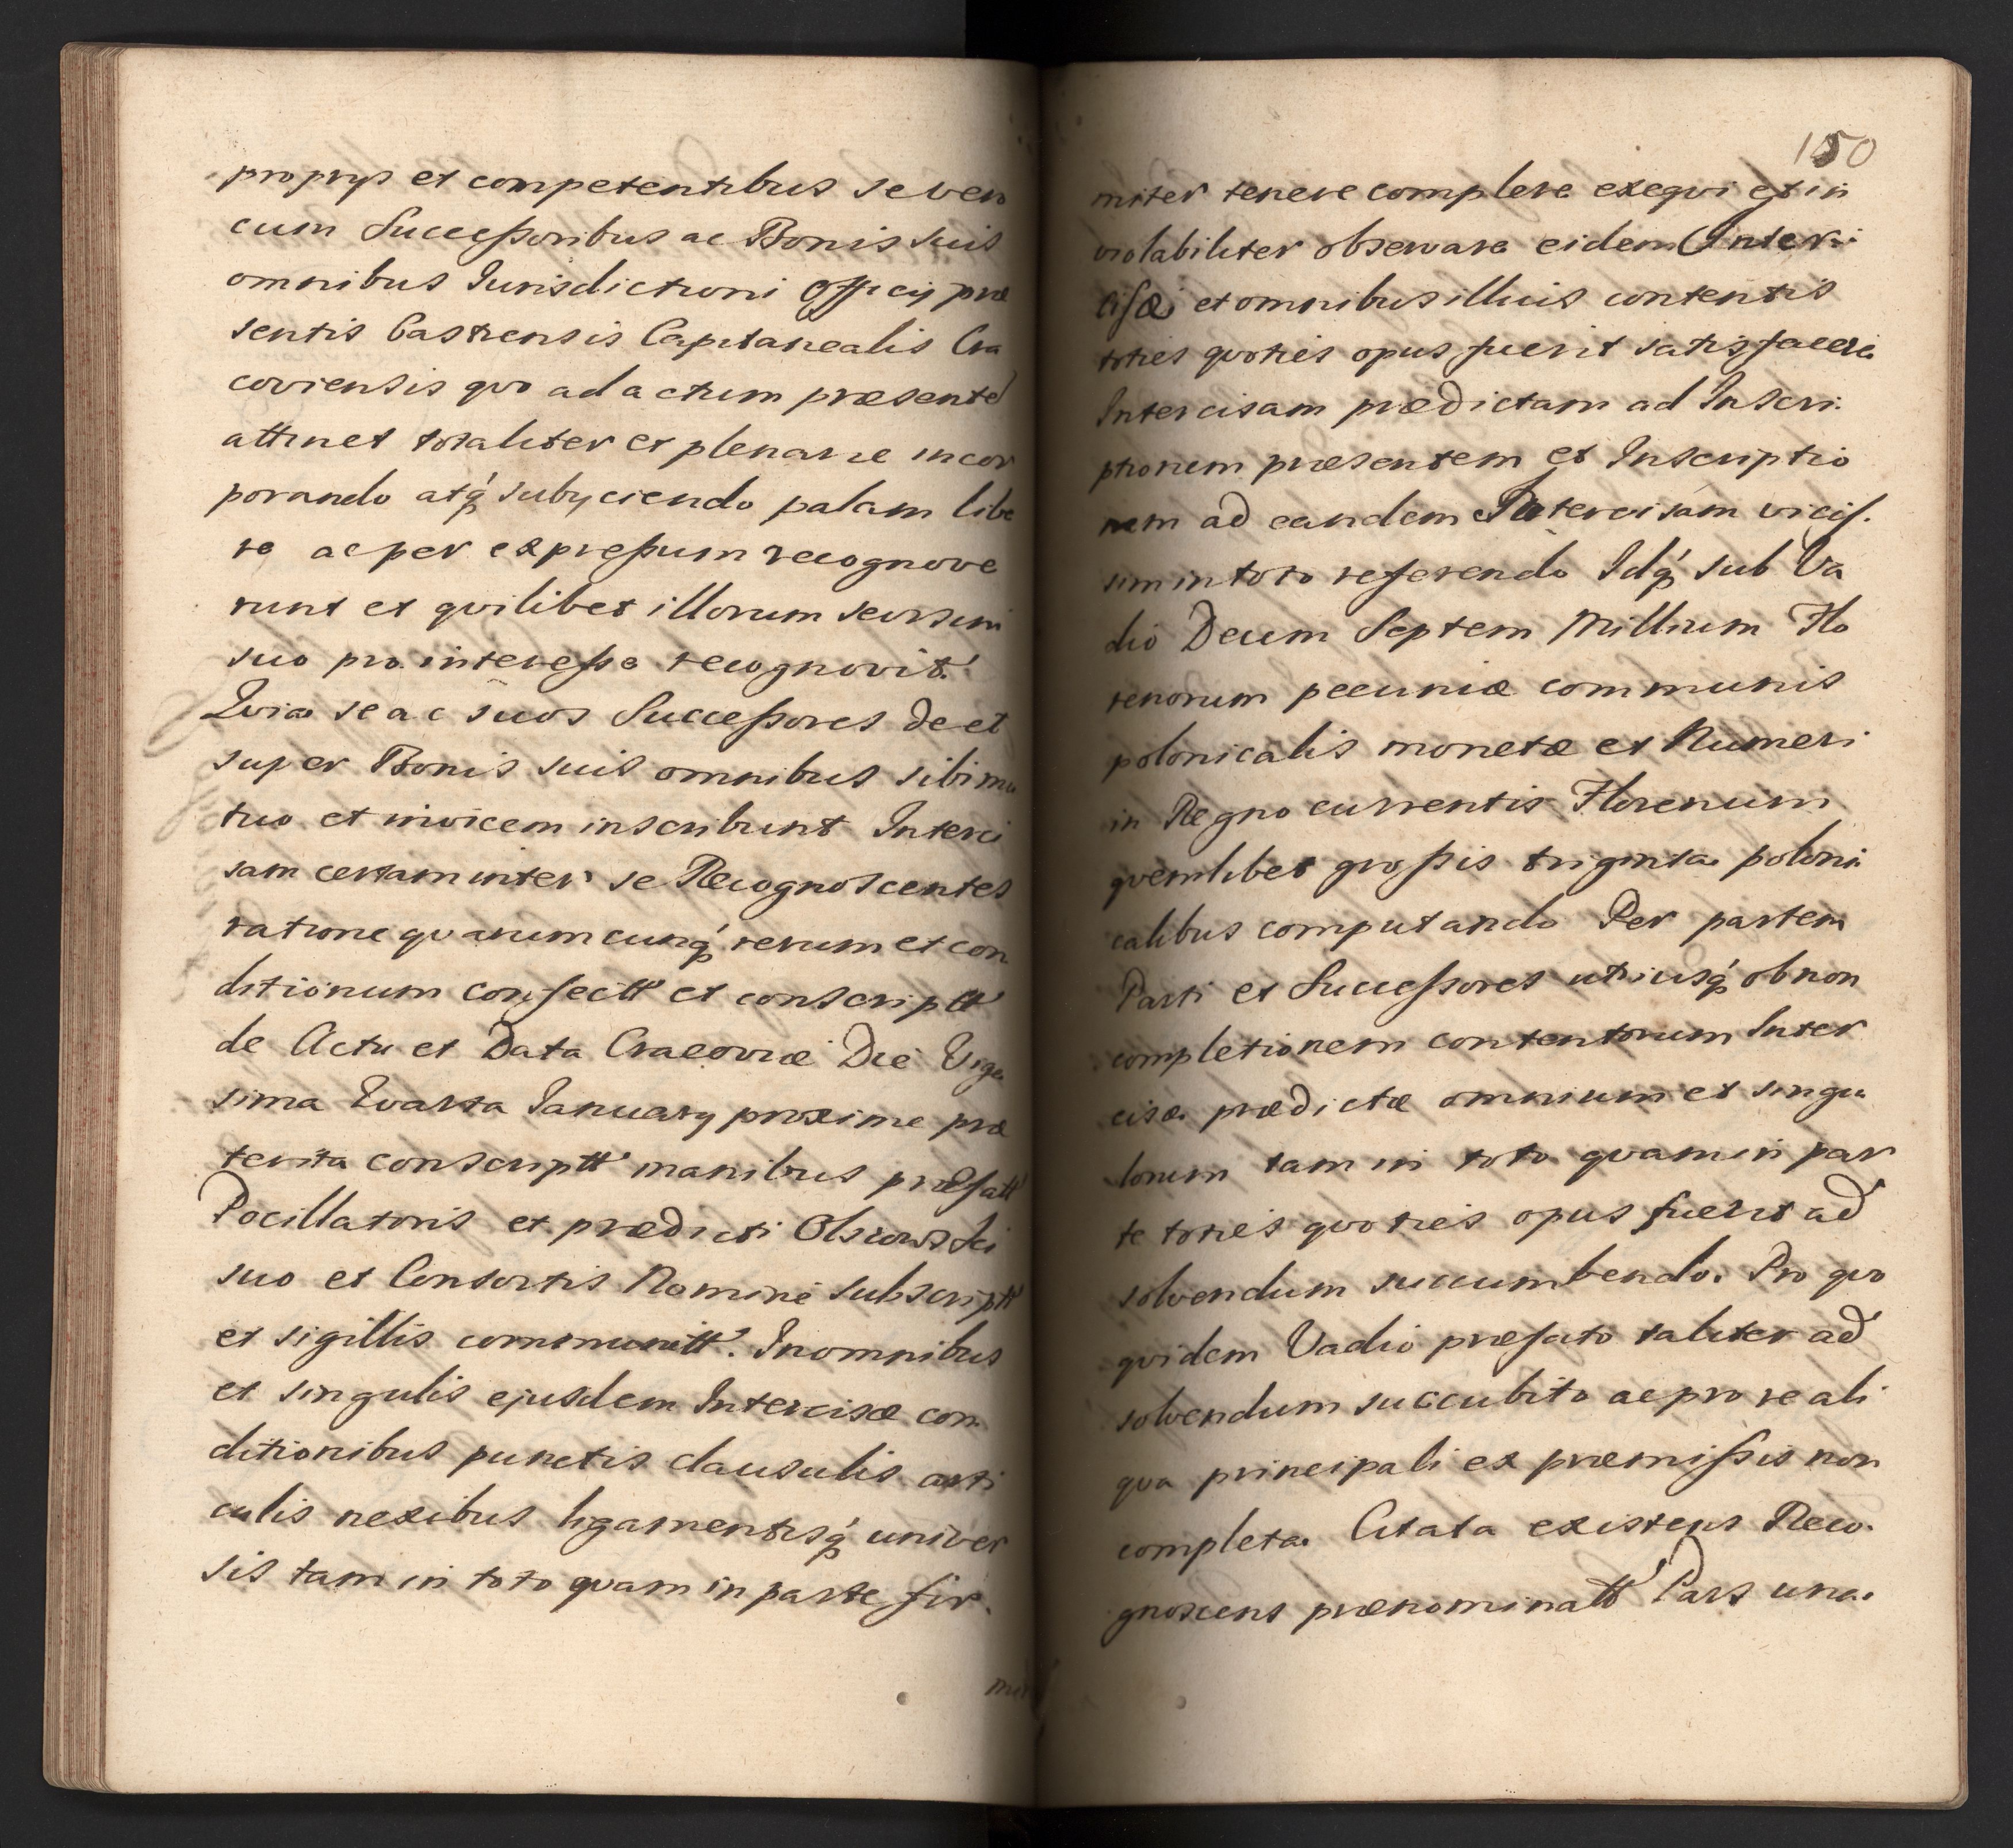 proprys et competentibus se vero
cum Successoribus ac Bonis suis
omnibus Iurisdictioni Officij præ
sentis Castrensis Capitanealis Cra
coviensis qvo ad actum præsentē
attinet totaliter et plenarie incor
porando atq́ subyciendo palam libe
re ac per expressum recognove
runt et qvilibet illorum seorsim
suo pro interesse recognovit.
Qvia se ac suos Successores de et
super Bonis suis omnibus sibi mu
tuo et invicem inscribunt Interci
sam certam inter se Recognoscentes
ratione qvarumcunq́ rerum et con
ditionum confectt et conscriptt
de Actu et Data Cracoviæ Die Vige
sima Qvarta January proxime præ
terita conscriptt manibus præfatt
Pocillatoris et prædicti Olszowski
suo et Consortis Nomine subscriptt
et sigillis communitt. In omnibus
et singulis ejusdem Intercisæ con
ditionibus punctis clausulis arti
culis nexibus ligamentisq́ univer
sis tam in toto qvam in parte fir.
150
miter tenere complere exeqvi et in
violabiliter observare eidem Inter.
cisæ et omnibus illius contentis
toties qvoties opus fuerit satisfacere
Intercisam prædictam ad Inscri.
ptionem præsentem et Inscriptio
nem ad eandem Intercisam vicis.
sim in toto referendo Idq́ sub Va
dio Decem Septem Millium Flo
renorum pecuniæ communis
polonicalis monetæ et Numeri
in Regno currentis Florenum
qvemlibet grossis triginta poloni
calibus computando Per partem
Parti et Successores utriusq́ ob non
completionem contentorum Inter
cisæ prædictæ omnium et singu
lorum tam in toto qvam in par
te toties qvoties opus fuerit ad
solvendum succumbendo. Pro qvo
qvidem Vadio præfato taliter ad
solvendum succubito ac pro re ali
qva principali ex præmissis non
completa. Citata existens Reco.
gnoscens prænominatt Pars una.